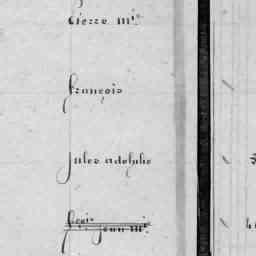 Pierre M.ie
François
Jules adolphe
Fçois Jean M.ie